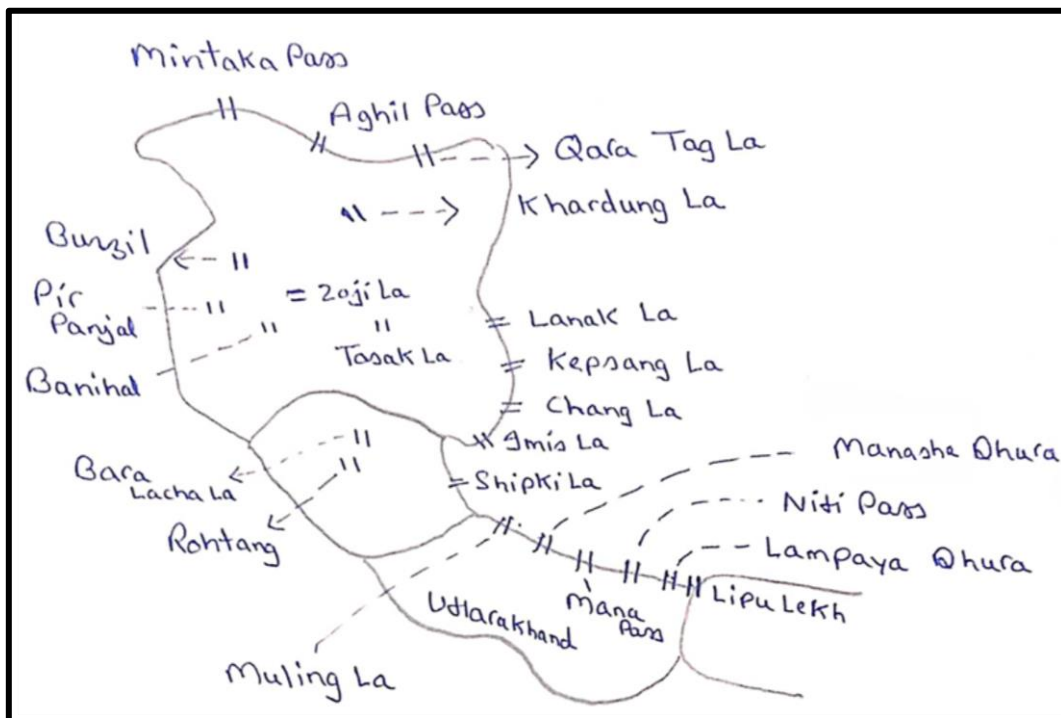 Mintaka Pass
Aghil Pass
Qara Tag La
Khardung La
Burzil
Pir
Panjal
= Zoji La
Banihal
Tasak La
Lanak La
Kepsang La
Chang La
Imis La
Bara
Lacha La
Shipki La
Manasha Dhura
Niti Pass
Rohtang
Lampaya Dhura
Lipu Lekh
Mana
Pass
Uttarakhand
Muling La